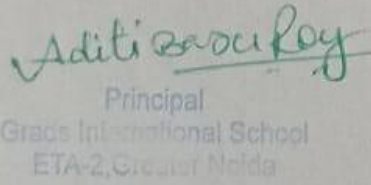 Aditi Basu Roy
Principal
Grads International School
ETA-2, Greater Noida